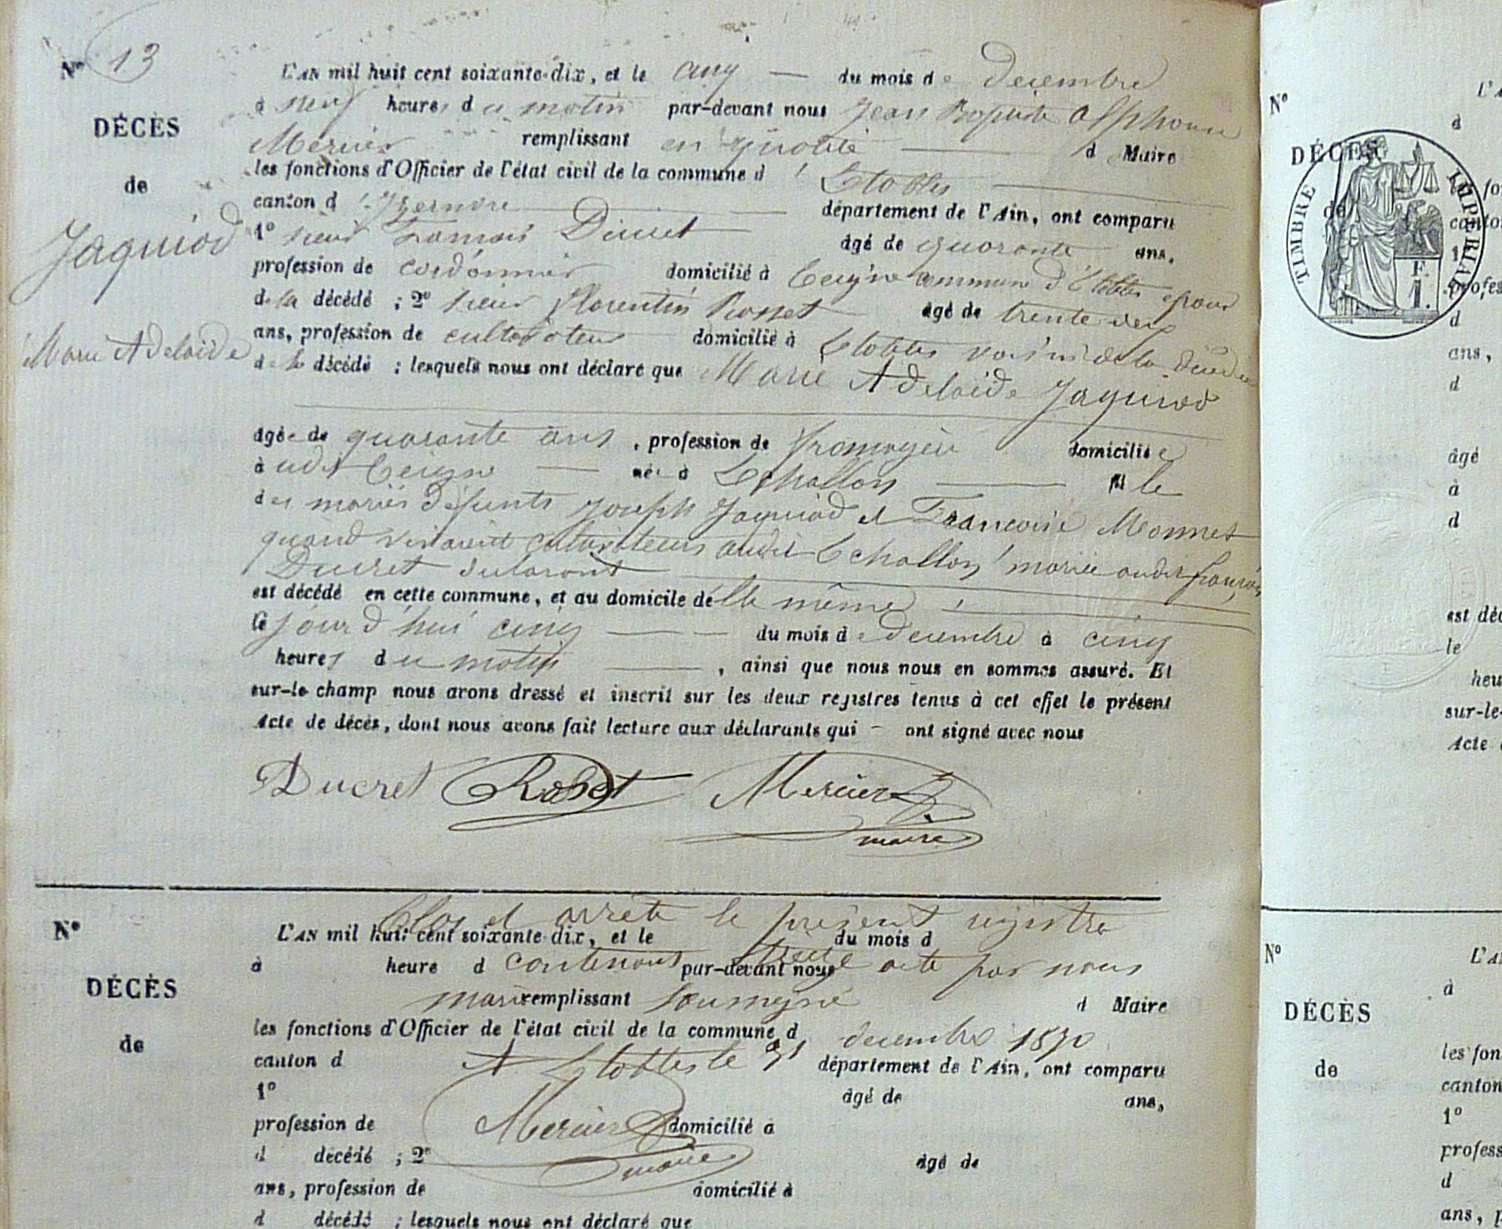 N° 13
DÉCÈS
de
Jaquiod
Marie Adelaïde
L'AN mil huit cent soixante-dix, et le cinq du mois de decembre
à neuf heures du matin par-devant nous Jean Baptiste Alphonse
Mercier remplissant en qualité d Maire
les fonctions d'Officier de l'état civil de la commune d'Etables
canton d'Izernore département de l'Ain, ont comparu
1° sieur François Ducret âgé de quarante ans,
profession de cordonnier domicilié à Ceigne commune d'Etables epoux
de la décédé ; 2° sieur Florentin Rosset âgé de trente deux
ans, profession de cultivateur domicilié à Etables voisin de la décédée
de la décédé ; lesquels nous ont déclaré que Marie Adelaïde Jaquiod
âgée de quarante ans, profession de fromagère domiciliée
à udit Ceigne née à Echallon fille
des mariés défunts Joseph Jaquiod et Francoise Monnet
quand vivaient cultivateurs audit Echallon mariée audit français
Ducret déclarant
est décédé en cette commune, et au domicile de elle même
le jourd'hui cinq du mois de decembre à cinq
heures du matin, ainsi que nous nous en sommes assuré. Et
sur-le champ nous avons dressé et inscrit sur les deux registres tenus à cet effet le présent
Acte de décès, dont nous avons fait lecture aux déclarants qui ont signé avec nous
Ducret Rosset Mercier
maire
Clos et arrêté le présent registre
N° L'AN mil huit cent soixante-dix, et le du mois d
DÉCÈS
à heure d par-devant nous
contenant treize acte par nous
maire remplissant soussigné d Maire
de
les fonctions d'Officier de l'état civil de la commune d
A Etables le 31 decembre 1870
canton d département de l'Ain, ont comparu
1° âgé de ans,
profession de domicilié à
Mercier
maire
d décédé ; 2° âgé de
ans, profession de domicilié à
d décédé ; lesquels nous ont déclaré que
N°
L'A
d
DÉCÈS
TIMBRE IMPÉRIAL
F.
I.
de
les fo
canton
1
profes
d
ans,
d
âgé
à
d
est déc
le
heu
sur-le-
Acte
N°
L'A
à
DÉCÈS
de
les fon
canton
1°
profess
d
ans, p